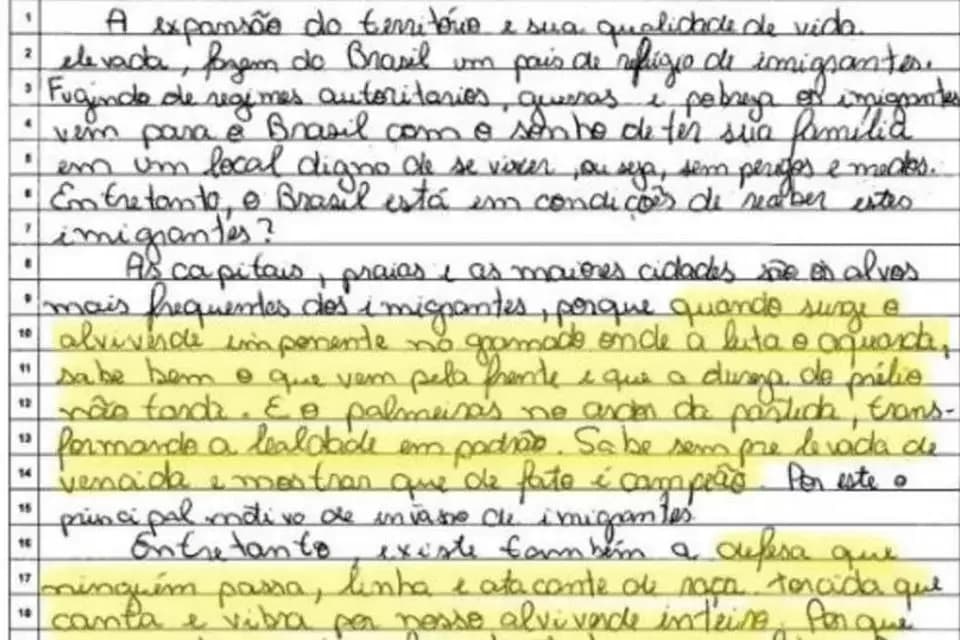 1 A expansão do território e sua qualidade de vida
2 elevada, fazem do Brasil um pais de refúgio de imigrantes.
3 Fugindo de regimes autoritarios, guerras e pobreza os imigrantes
4 vem para o Brasil com o sonho de ter sua família
5 em um local digno de se viver, ou seja, sem perigos e medos.
6 Entretanto, o Brasil está em condições de receber estes
7 imigrantes?
8 As capitais, praias e as maiores cidades são os alvos
9 mais frequentes dos imigrantes, porque quando surge o
10 alviverde imponente no gramado onde a luta o aguarda,
11 sabe bem o que vem pela frente e que a dureza do prélio
12 não tarda. E o palmeiras no ardor da partida, trans-
13 formando a lealdade em padrão. Sabe sempre levada de
14 vencida e mostrar que de fato é campeão. Por este o
15 principal motivo de invasão de imigrantes.
16 Entretanto, existe também a defesa que
17 ninguém passa, linha e atacante de raça. torcida que
18 canta e vibra por nosso alviverde inteiro. Porque